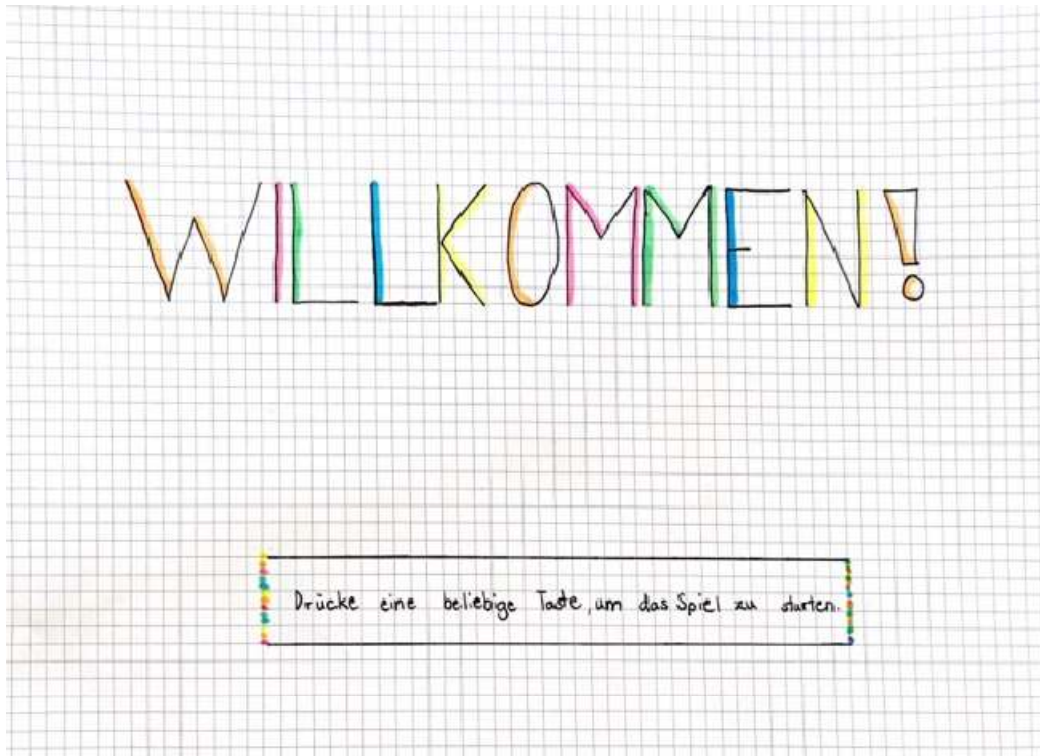 WILLKOMMEN!
Drücke eine beliebige Taste, um das Spiel zu starten.